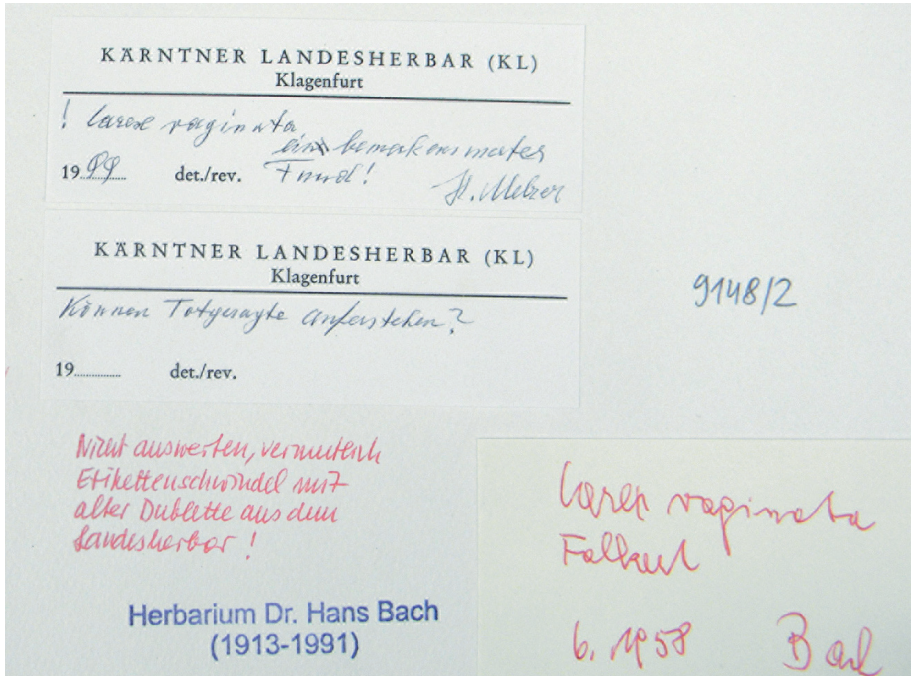 KÄRNTNER LANDESHERBAR (KL)
Klagenfurt
! Carex vaginata
ein bemerkenswerter
1999 det./rev. Fund!
H. Melzer
KÄRNTNER LANDESHERBAR (KL)
Klagenfurt
Können Totgesagte auferstehen?
19........ det./rev.
9148/2
Nicht auswerten, vermutlich
Etikettenschwindel mit
alter Dublette aus dem
Landesherbar !
Herbarium Dr. Hans Bach
(1913-1991)
Carex vaginata
Falkert
6. 1958 Bach